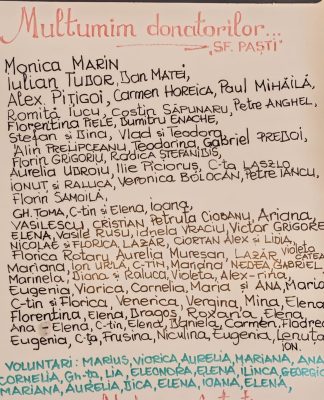 Multumim donatorilor...
"SF. PAȘTI"
Monica MARIN
Iulian TUDOR, Dan MATEI,
Alex PIȚIGOI, Carmen HOREICA, Paul MIHĂILĂ,
Romiță Iucu, Costin SĂPUNARU, Petre ANGHEL,
Florentina PIELE, Dumitru ENACHE,
Ștefan și Dina, Vlad și Teodora,
Alin PRELIPCEANU, Teodorina, Gabriel PREDOI,
Florin GRIGORIU, Rodica ȘTEFĂNIDIS,
Aurelia UDROIU, Ilie Piciorus, C-ța LASZLO,
IONUȚ și RALUCA, Veronica BOLOCAN, PETRE IANCU,
Florin SAMOILĂ,
GH. TOMA, C-tin și Elena, Ioana,
VASILESCU CRISTIAN, Petruța CIOBANU, Ariana,
ELENA, Vasile RUSU, VRACIU, Victor GRIGORE
NICOLAE și FLORICA LAZĂR, CIORTAN ALEX și LIDIA,
Florica Rotaru, Aurelia Mureșan, LAZĂR violeta
Mariana, Ion URUC, C-tin, Mariana, NEDEA, GABRIEL,
Marinela, Ioana și Raluca, Violeta, Alex-
Eugenia, Viorica, Cornelia, Maria și ANA, Maria
C-tin și Florica, Venerica, Vergina, Mina, Elena
Florentina, Elena, Dragoș, Roxana, Elena
Ana - Elena, C-tin, Elena, Daniela, Carmen,
Eugenia, C-ța, Frusina, Niculina, Eugenia, Lenuța
ION.
VOLUNTARI: MARIUS, VIORICA, AURELIA, MARIANA, ANA
CORNELIA, Gh-ța, LIA, ELEONORA, ELENA, ILINCA, GEORGI
MARIANA, AURELIA, BICA, ELENA, IOANA, ELENA,